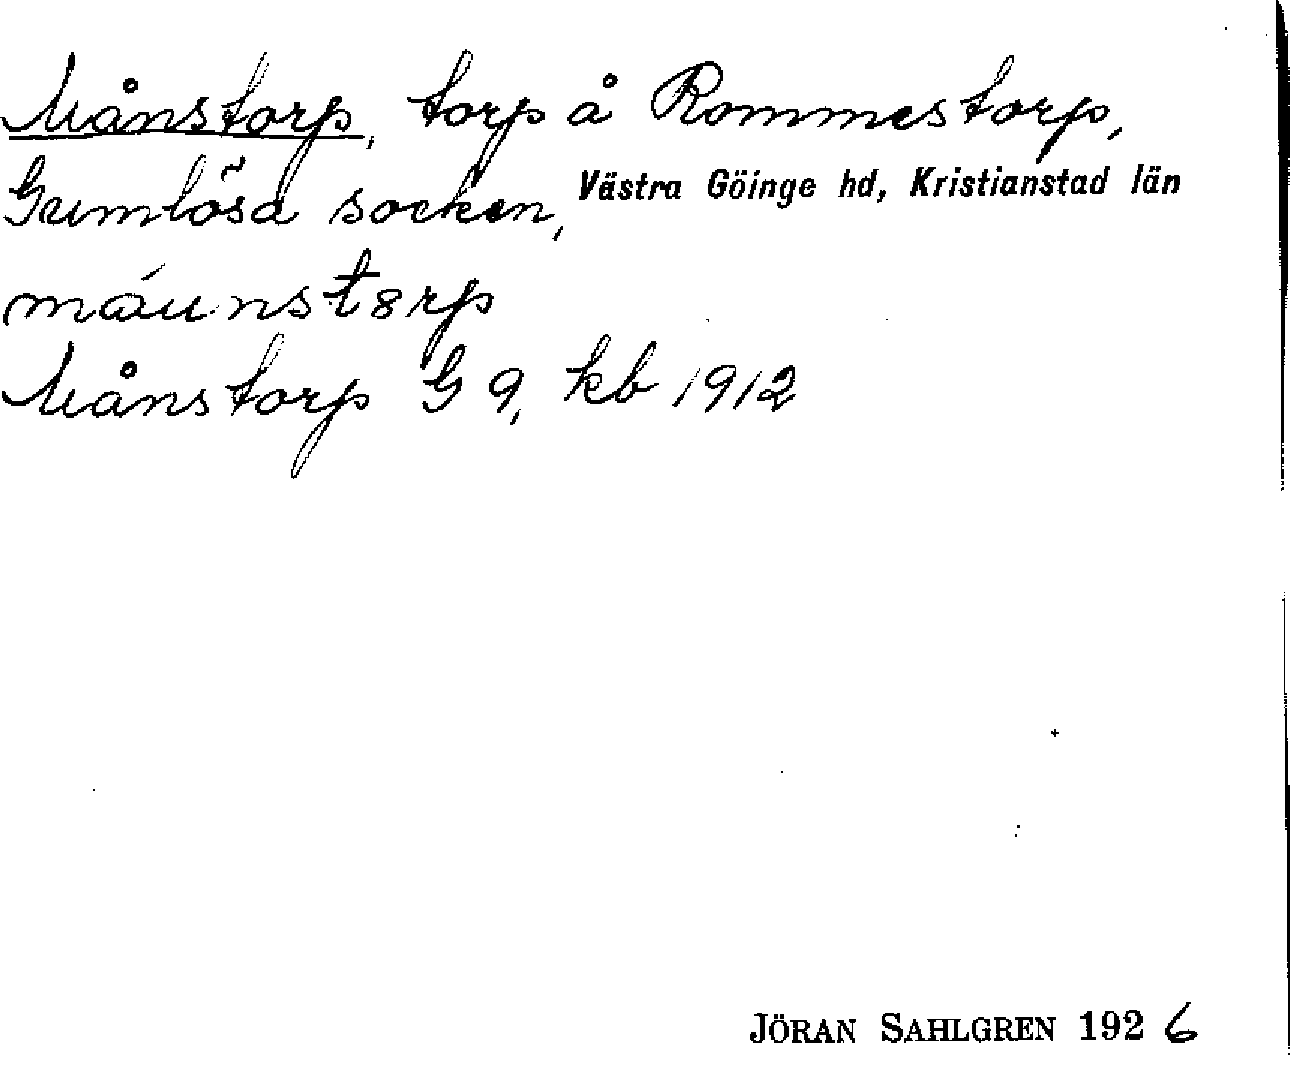 Månstorp, torp å Rommestorp,
Gumlösa socken, Västra Göinge hd, Kristianstad län
máunstorp
Månstorp G 9, kb 1912
JÖRAN SAHLGREN 1926